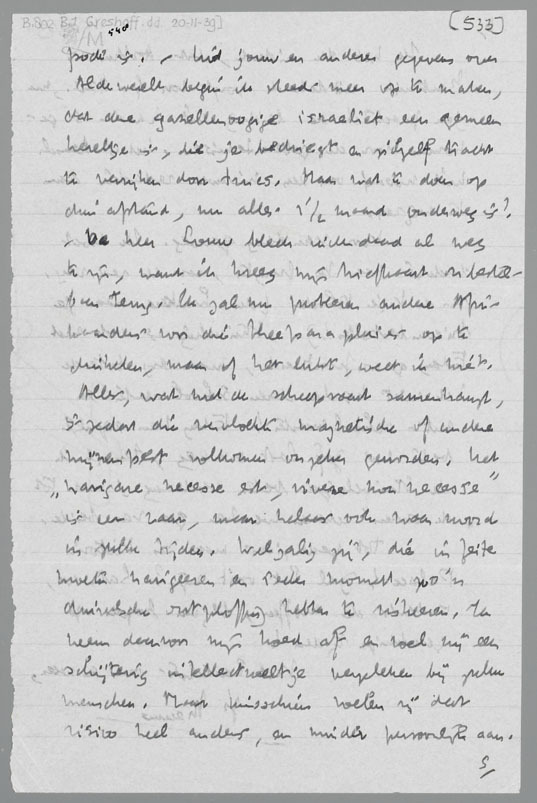 B.802 B.1 Greshoff. dd. 20-11-39]
[533]
is. – Uit jouw en andere gegevens over
Aldewereld begin ik steeds meer op te maken,
dat deze gazellenoogige israeliet een gemeen
kereltje is, die je bedriegt en zichzelf tracht
te verrijken door truc's. Maar wat te doen op
dien afstand, nu alles 1½ maand onderweg is?
– De heer Louw bleek inderdaad al weg
te zijn, want ik kreeg mijn briefkaart onbestel-
baar terug. Ik zal nu probeeren andere Afri-
kaanders voor die theeparapluies op te
duikelen, maar of het lukt, weet ik niet.
Alles, wat met de scheepvaart samenhangt,
is zoodat die vervloekte magnetische of andere
mijnenpest volkomen onzeker geworden. Het
„navigare necesse est, vivere non necesse"
is een waar, maar helaas ook waar woord
in zulke tijden. Welzalig zij, die in feite
moeten navigeeren en ieder moment zoo'n
duivelsche ontploffing hebben te riskeeren. Ik
neem daarvoor mijn hoed af en voel mij een
schijterig intellectueeltje vergeleken bij zulke
menschen. Maar misschien voelen zij dat
risico heel anders, en minder persoonlijk aan.
5/